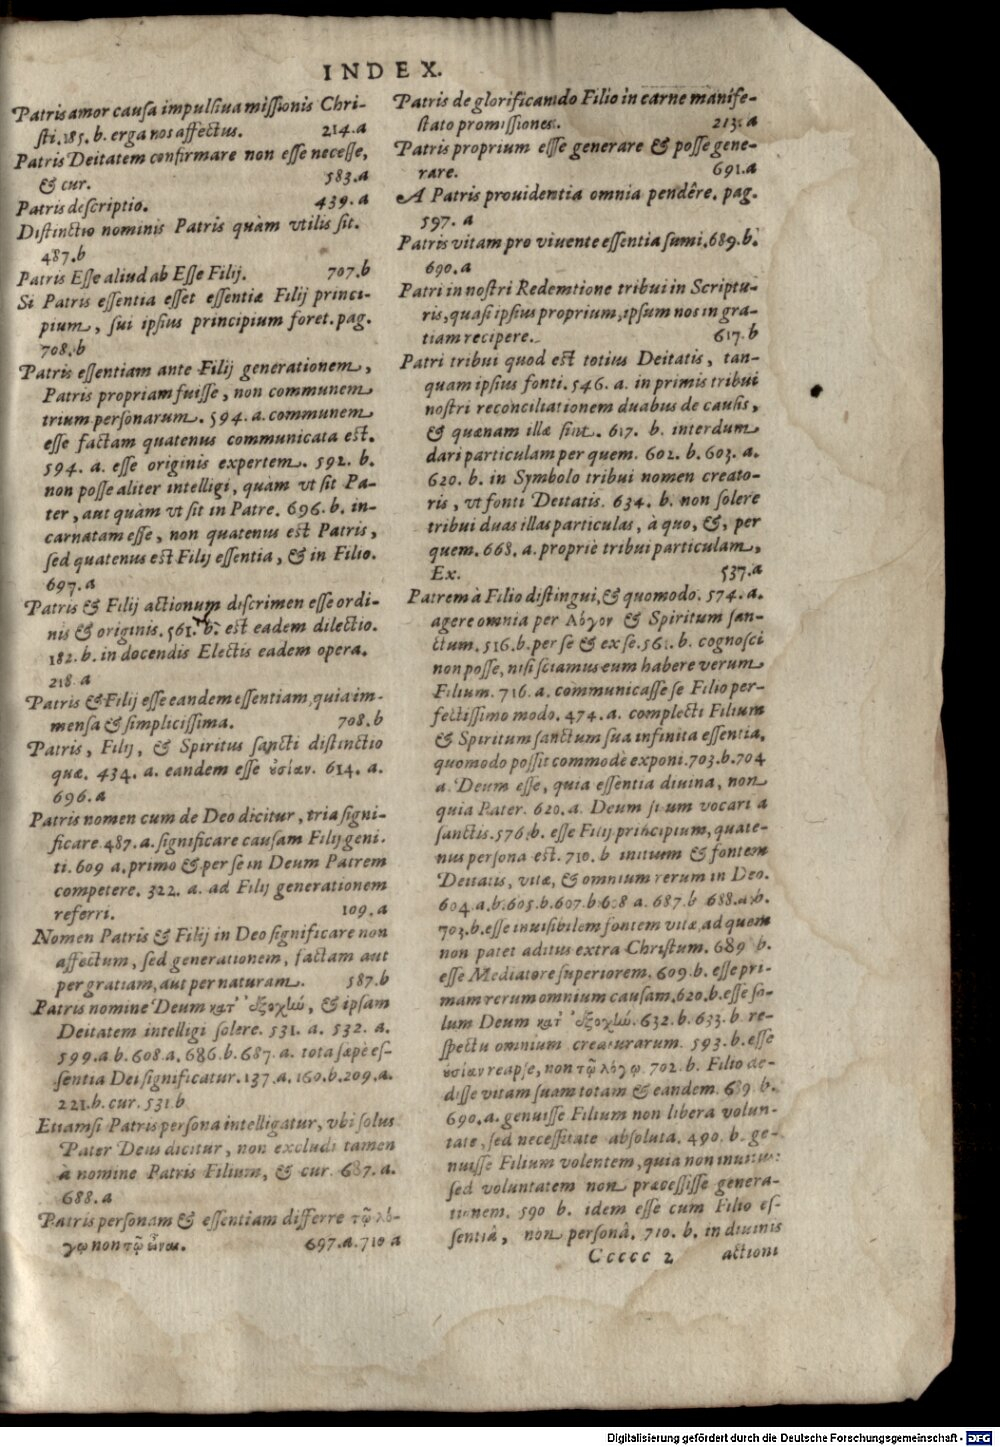 INDEX.
Patris amor causa impulsiua missionis Chri-
sti. 185. b. erga nos affectus. 214. a
Patris Deitatem confirmare non esse necesse,
& cur. 583. a
Patris descriptio. 439. a
Distinctio nominis Patris quàm vtilis sit.
487. b
Patris Esse aliud ab Esse Filij. 707. b
Si Patris essentia esset essentiæ Filij princi-
pium, sui ipsius principium foret. pag.
708. b
Patris essentiam ante Filij generationem,
Patris propriam fuisse, non communem
trium personarum. 594. a. communem
esse factam quatenus communicata est.
594. a. esse originis expertem. 592. b.
non posse aliter intelligi, quàm vt sit Pa-
ter, aut quàm vt sit in Patre. 696. b. in-
carnatam esse, non quatenus est Patris,
sed quatenus est Filij essentia, & in Filio.
697. a
Patris & Filij actionum discrimen esse ordi-
nis & originis. 561. b. est eadem dilectio.
182. b. in docendis Electis eadem opera.
218. a
Patris & Filij esse eandem essentiam, quia im-
mensa & simplicissima. 708. b
Patris, Filij, & Spiritus sancti distinctio
quæ. 434. a. eandem esse ὐσίαν. 614. a.
696. a
Patris nomen cum de Deo dicitur, tria signi-
ficare. 487. a. significare causam Filij geni-
ti. 609 a. primo & per se in Deum Patrem
competere. 322. a. ad Filij generationem
referri. 109. a
Nomen Patris & Filij in Deo significare non
affectum, sed generationem, factam aut
per gratiam, aut per naturam. 587. b
Patris nomine Deum κατ' ἐξοχὼ, & ipsam
Deitatem intelligi solere. 531. a. 532. a.
599. a b. 608. a. 686. b. 687. a. tota sæpè es-
sentia Dei significatur. 137. a. 160. b. 209. a.
221. b. cur. 531 b
Etiamsi Patris persona intelligatur, vbi solus
Pater Deus dicitur, non excludi tamen
à nomine Patris Filium, & cur. 687. a.
688. a
Patris personam & essentiam differre τῷ λό-
γῳ non τῷ εἶναι. 697. a. 710 a
Patris de glorificando Filio in carne manife-
stato promissiones. 213. a
Patris proprium esse generare & posse gene-
rare. 691. a
A Patris prouidentia omnia pendêre. pag.
597. a
Patris vitam pro viuente essentia sumi. 689. b.
690. a
Patri in nostri Redemtione tribui in Scriptu-
ris, quasi ipsius proprium, ipsum nos in gra-
tiam recipere. 617. b
Patri tribui quod est totius Deitatis, tan-
quam ipsius fonti. 546. a. in primis tribui
nostri reconciliationem duabus de causis,
& quænam illæ sint. 617. b. interdum
dari particulam per quem. 602. b. 603. a.
620. b. in Symbolo tribui nomen creato-
ris, vt fonti Deitatis. 634. b. non solere
tribui duas illas particulas, à quo, &, per
quem. 668. a. propriè tribui particulam,
Ex. 537. a
Patrem à Filio distingui, & quomodo. 574. a.
agere omnia per Λόγον & Spiritum san-
ctum. 516. b. per se & ex se. 561. b. cognosci
non posse, nisi sciamus eum habere verum
Filium. 716. a. communicasse se Filio per-
fectissimo modo. 474. a. complecti Filium
& Spiritum sanctum sua infinita essentia,
quomodo possit commodè exponi. 703. b. 704
a. Deum esse, quia essentia diuina, non
quia Pater. 620. a. Deum suum vocari a
sanctis. 576. b. esse Filij principium, quate-
nus persona est. 710. b initium & fontem
Deitatis, vitæ, & omnium rerum in Deo.
604. a. b. 605. b. 607. b 608 a. 687. b 688. a. b.
703. b. esse inuisibilem fontem vitæ, ad quem
non patet aditus extra Christum. 689 b.
esse Mediatore superiorem. 609. b. esse pri-
mam rerum omnium causam. 620. b. esse so-
lum Deum κατ' ἐξοχὼ. 632. b. 633. b. re-
spectu omnium creaturarum. 593. b. esse
ὐσίαν reapse, non τῷ λόγῳ. 702. b. Filio de-
disse vitam suam totam & eandem. 689. b.
690. a. genuisse Filium non libera volun-
tate, sed necessitate absoluta. 490. b. ge-
nuisse Filium volentem, quia non inuitum:
sed voluntatem non præcessisse genera-
tionem. 590 b. idem esse cum Filio es-
sentiâ, non personâ. 710. b. in diuinis
Ccccc 2 actioni
Digitalisierung gefördert durch die Deutsche Forschungsgemeinschaft - DFG